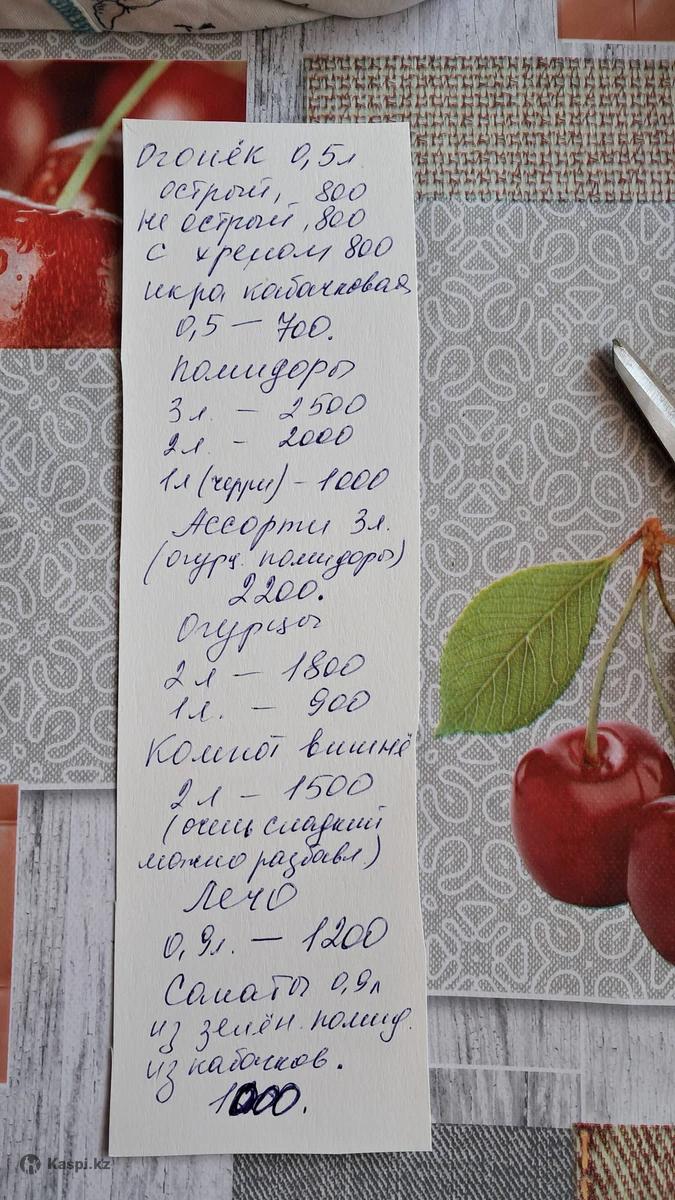 Огонёк 0,5л.
острый, 800
не острый, 800
с хреном 800
икра кабачковая
0,5 – 700.
помидоры
3л. – 2500
2л. – 2000
1л (черри) – 1000
Ассорти 3л.
(огурц. помидоры)
2200.
Огурцы
2л – 1800
1л. – 900
Компот вишнё
2л – 1500
(очень сладкий
можно разбавл.)
Лечо
0,9л. – 1200
Салаты 0,9л
из зелён. помид.
из кабачков.
1000.
Kaspi.kz